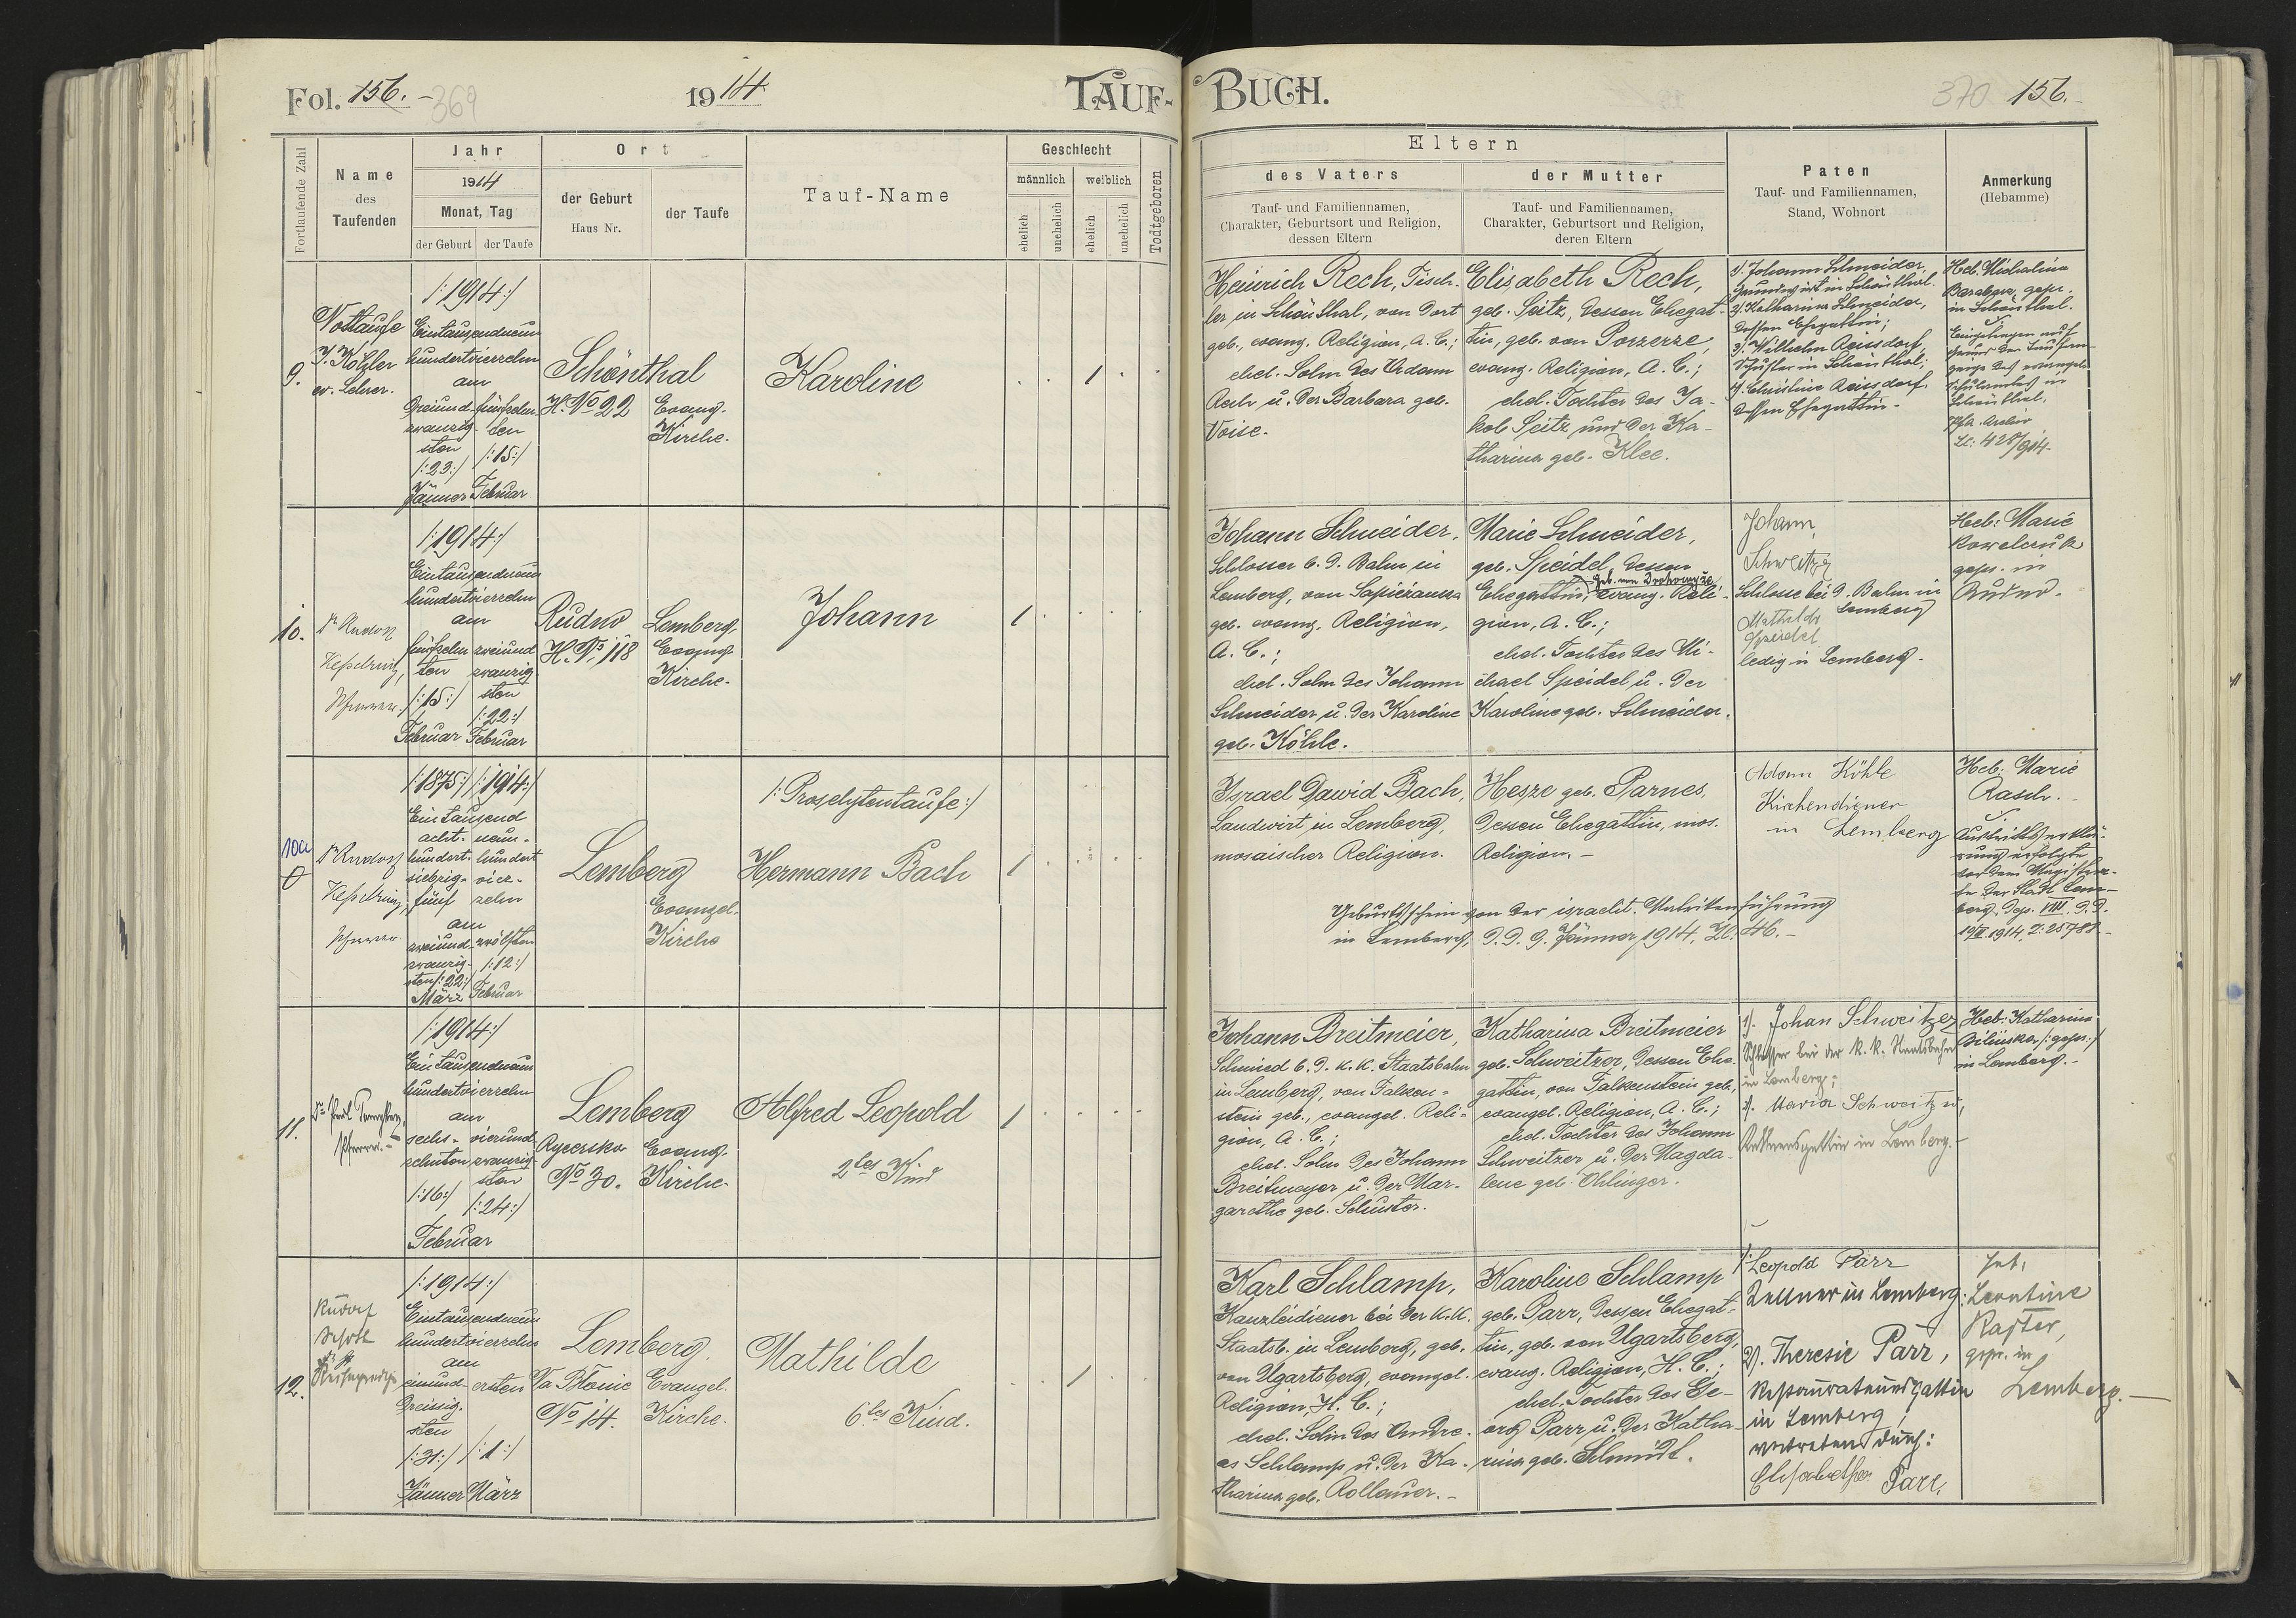 Fol. 156.
369
1914
TAUF-
BUCH.
370
156.
Fortlaufende Zahl
Name
des
Taufenden
Jahr
1914
Monat, Tag
der Geburt
der Taufe
Ort
der Geburt
Haus Nr.
der Taufe
Tauf-Name
Geschlecht
männlich
weiblich
ehelich
unehelich
ehelich
unehelich
Todtgeboren
Eltern
des Vaters
Tauf- und Familiennamen,
Charakter, Geburtsort und Religion,
dessen Eltern
der Mutter
Tauf- und Familiennamen,
Charakter, Geburtsort und Religion,
deren Eltern
Paten
Tauf- und Familiennamen,
Stand, Wohnort
Anmerkung
(Hebamme)
9.
Nottaufe
J. Kötzler
ev. Lehrer.
/:1914:/
Eintausendneun
hundertvierzehn
am
dreiund-
zwanzig-
sten
/:23:/
Jänner
fünfzehn
ten
/:15:/
Februar
Schönthal
H. No 22
Evang.
Kirche.
Karoline
1
Heinrich Rech, Tisch-
ler in Schönthal, von dort
geb., evang. Religion, A. C.;
ehel. Sohn des Adam
Rech u. der Barbara geb.
Voise.
Elisabeth Rech,
geb. Seitz, dessen Ehegat-
tin, geb. von Porzerze,
evang. Religion, A. C.;
ehel. Tochter des Ja-
kob Seitz und der Ka-
tharina geb. Klee.
1/. Johann Schneider,
Grundwirt in Schönthal.
2/. Katharina Schneider,
dessen Ehegattin;
3/. Wilhelm Reisdorf,
Schuster in Schönthal;
4/. Christine Reisdorf,
dessen Ehegattin.
Heb. Michalina
gepr.
in Schönthal.
Eingetragen auf
Grund der
des evangel.
in
Schönthal,
Archiv
428/914.
10.
Dr Rudolf
Kesselring,
Pfarrer.
/:1914:/
Eintausendneun
hundertvierzehn
am
fünfzehn
ten
/:15:/
Februar
zweiund
zwanzig
sten
/:22:/
Februar
Rudno
H. No 118
Lemberg,
Evang.
Kirche.
Johann
1
Johann Schneider,
Schlosser b. d. Bahn in
Lemberg, von Sapieżanka
geb. evang. Religion,
A. C.;
ehel. Sohn des Johann
Schneider u. der Karoline
geb. Köhle.
Marie Schneider,
geb. Speidel, dessen
geb. von
Ehegattin, evang. Reli-
gion, A. C.;
ehel. Tochter des Mi-
chael Speidel u. der
Karoline geb. Schneider.
Johann
Schweitzer
Schlosser bei d. Bahn in
Lemberg
Mathilde
Speidel
ledig in Lemberg.
Heb: Marie
Kowelczuk
gepr. in
Rudno.
10a
Dr Rudolf
Kesselring,
Pfarrer.
/:1875:/
/:1914:/
Eintausend
acht-
hundert-
siebzig-
fünf
am
zweiund-
zwanzig-
sten /:22:/
März
neun-
hundert
vier-
zehn
zwölften
/:12:/
Februar
Lemberg
Evangel.
Kirche
/: Proselytentaufe:/
Hermann Bach
1
Israel Dawid Bach,
Landwirt in Lemberg,
mosaischer Religion.
Hesze geb. Parnes,
dessen Ehegattin, mos.
Religion. –
Geburtsschein von der israelit. Matrikenführung
in Lemberg, d. d. 9. Jänner 1914, Zl. 46. –
Adam Köhle
Kirchendiener
in Lemberg
Heb: Marie
Rasch.
Austrittserklä-
rung erfolgte
vor dem Magistra-
te der Stadt Lem-
berg, Dep. VIII. d. d.
1914, Z: 25781.
11.
Pfarrer.
/:1914:/
Eintausendneun
hundertvierzehn
am
sech-
zehnten
/:16:/
vierund-
zwanzig-
sten
/:24:/
Februar
Lemberg
Rycerska
No 30.
Evang.
Kirche.
Alfred Leopold
2tes Kind
1
Johann Breitmeier,
Schmied b. d. K. K. Staatsbahn
in Lemberg, von Falken-
stein geb., evangel. Reli-
gion, A. C.;
ehel. Sohn des Johann
Breitmayer u. der Mar-
garethe geb. Schuster.
Katharina Breitmeier
geb. Schweitzer, dessen Ehe-
gattin, von Falkenstein geb.,
evangel. Religion, A. C.;
ehel. Tochter des Johann
Schweitzer u. der Magda-
lene geb. Ohlinger.
1/. Johan Schweitzer
Schlosser bei der k. k. Staatsbahn
in Lemberg;
2/. Maria Schweitzer,
in Lemberg.
Heb: Katharina
Bilińska /:gepr.:/
in Lemberg. –
12.
Rudolf
/:1914:/
Eintausendneun
hundertvierzehn
am
einund-
dreissig-
sten
/:31:/
Jänner
ersten
/:1:/
März
Lemberg.
Na Błonie
No 14.
Evangel.
Kirche.
Mathilde
6.tes Kind.
1
Karl Schlamp,
Kanzleidiener bei der K. K.
Staatsb. in Lemberg, geb.
von Ugartsberg, evangel.
Religion, H. C.;
ehel. Sohn des Andre-
as Schlamp u. der Ka-
tharina geb. Rollauer. –
Karoline Schlamp
geb. Parr, dessen Ehegat-
tin, geb. von Ugartsberg,
evang. Religion, H. C.;
ehel. Tochter des Ge-
org Parr u. der Katha-
rina geb. Schmidt.
1/: Leopold Parr
Kellner in Lemberg;
2/. Theresie Parr,
Restaurateursgattin
in Lemberg,
vertreten durch:
Elisabetha Parr.
Heb.
Leontine
Raster,
gepr. in
Lemberg. –